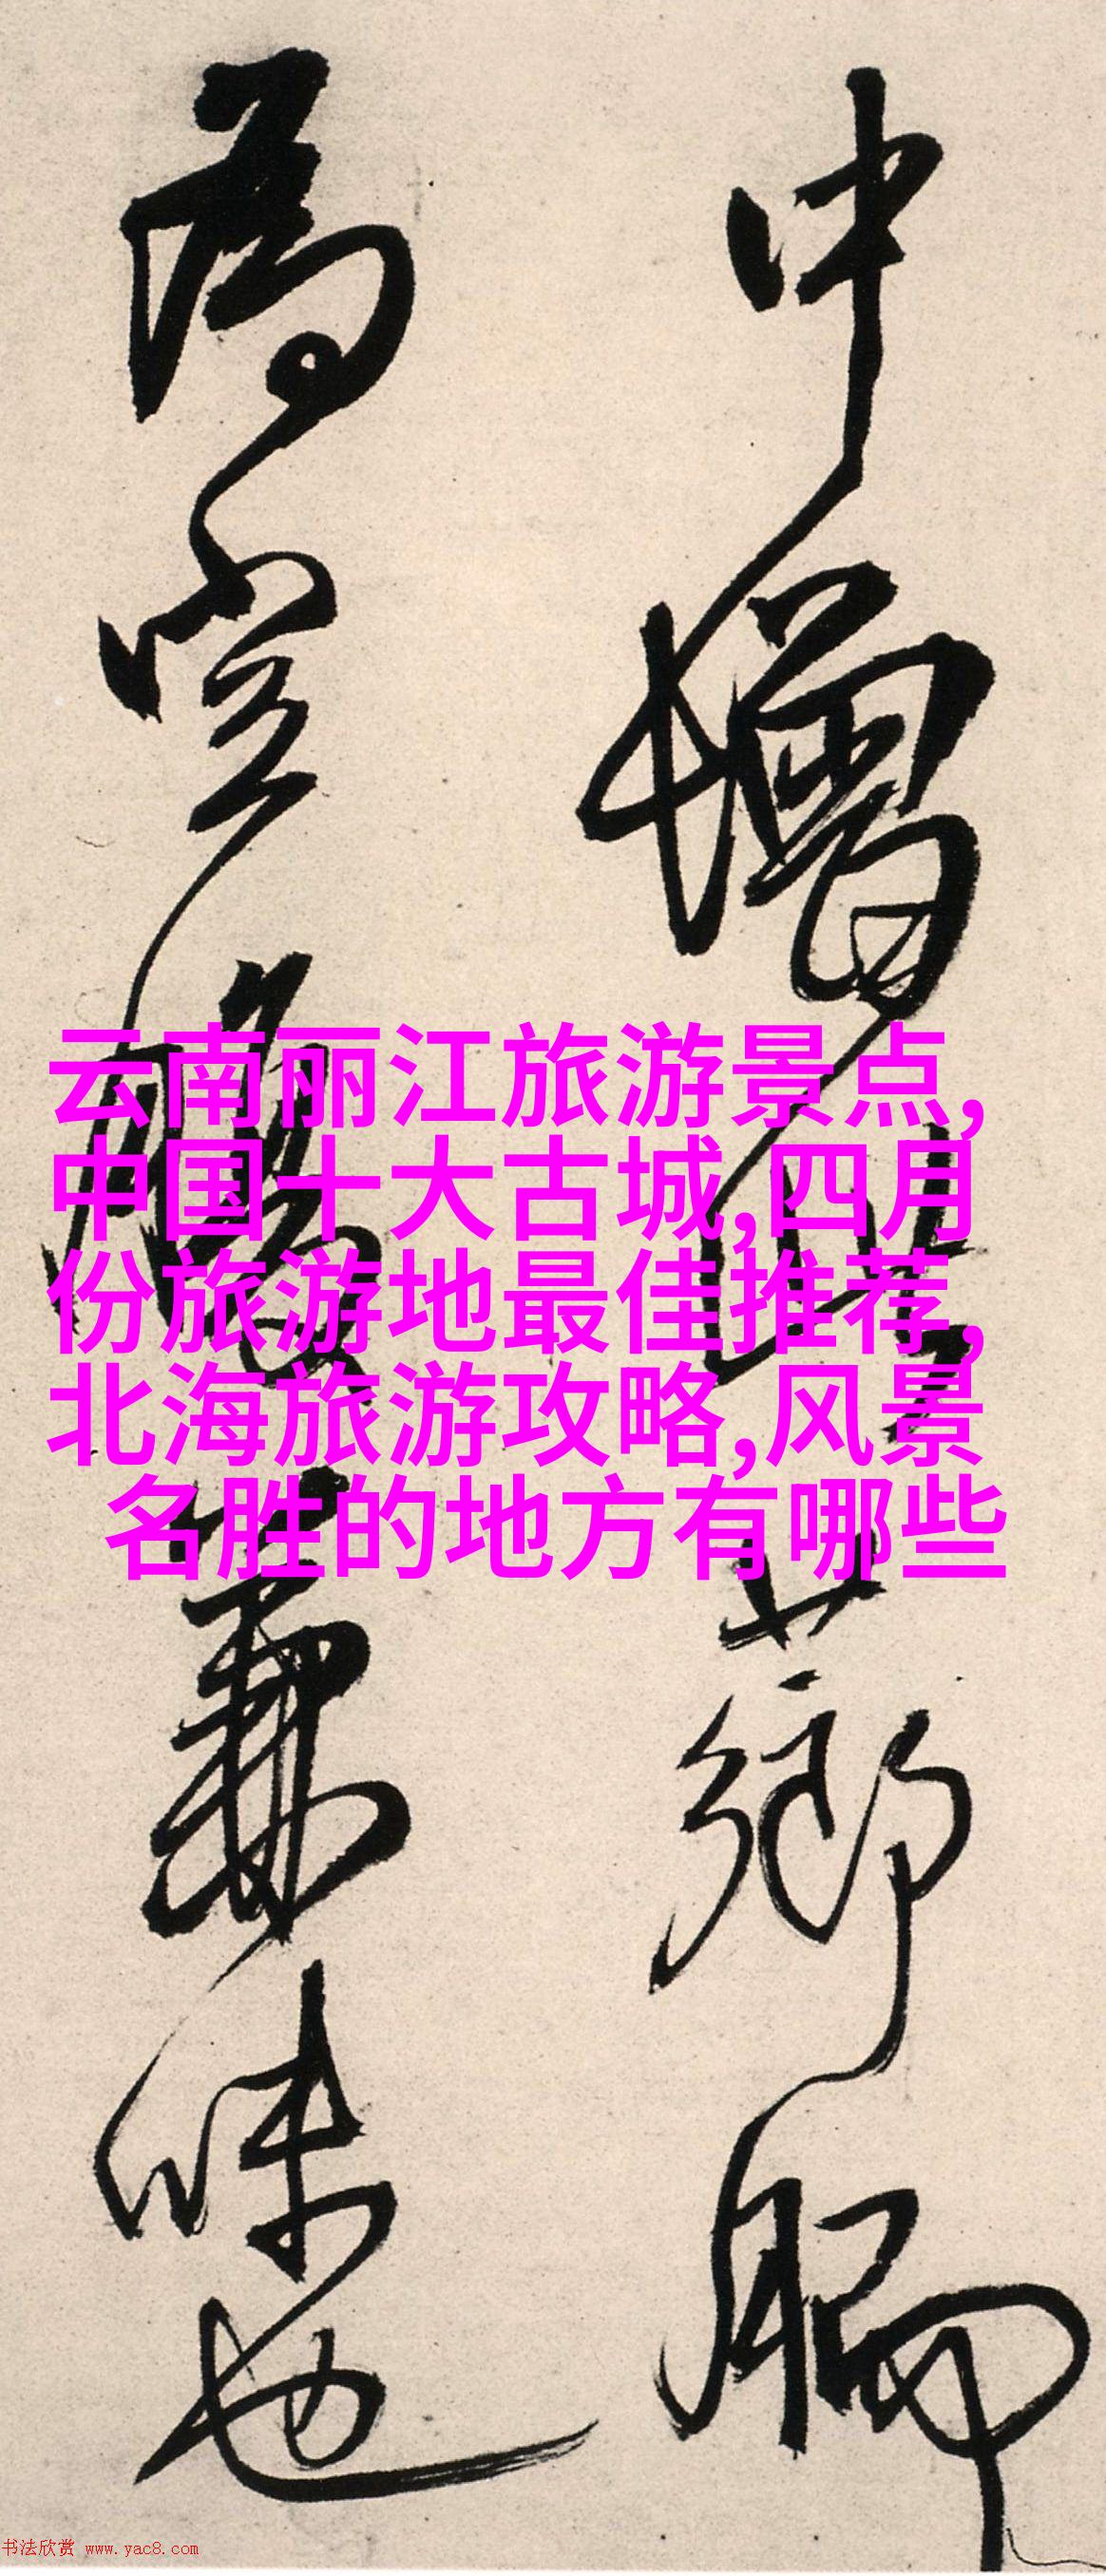 中增
為 兼味也
云南丽江旅游景点,
中国十大古城,四月
份旅游地最佳推荐,
北海旅游攻略,风景
名胜的地方有哪些
书法欣赏 www.yac8.com